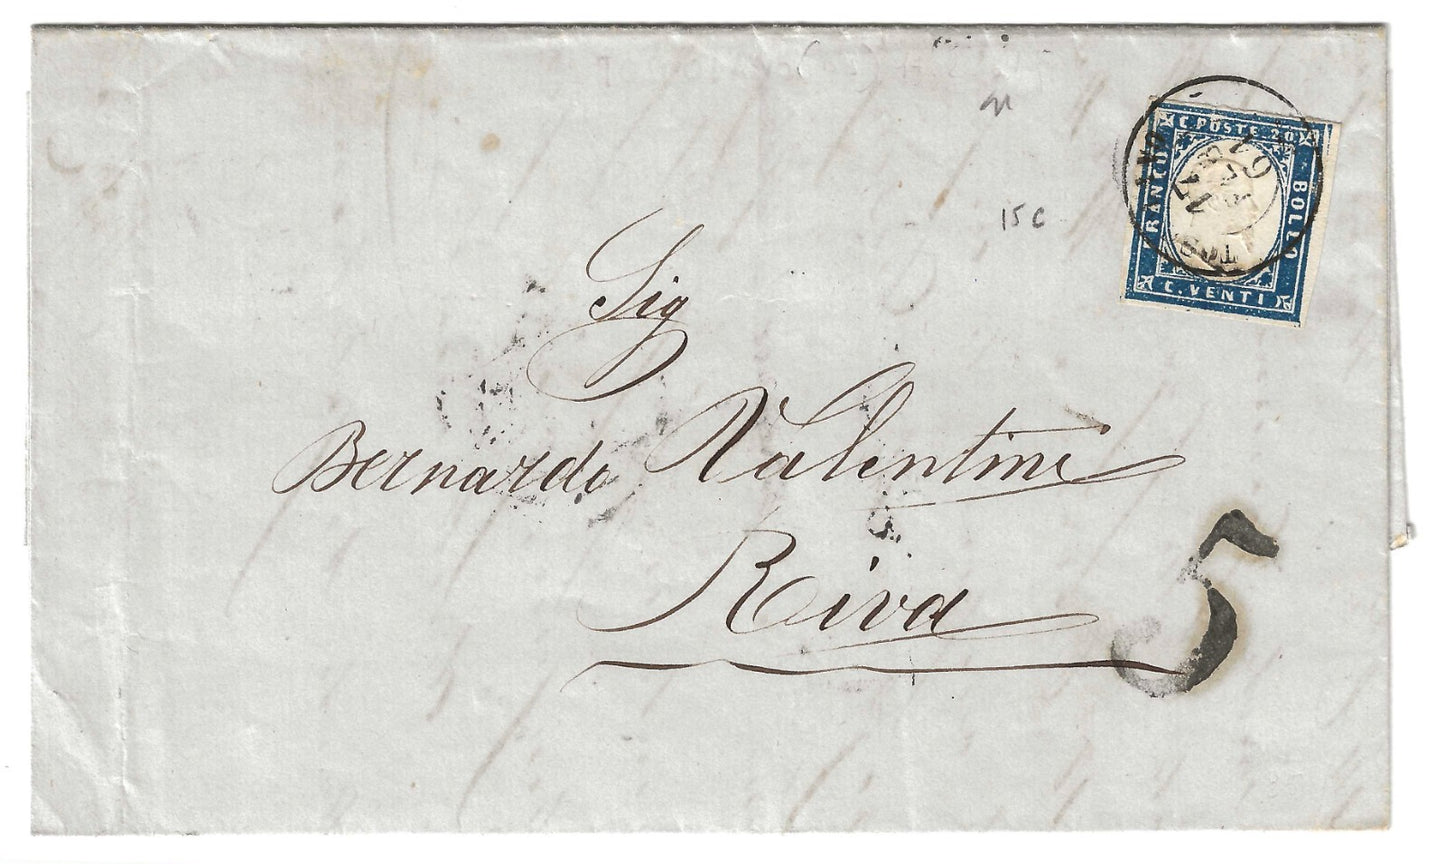 C. POSTE 20
FRANCO
BOLLO
C. VENTI
61
15 C
Sig
Bernardo Valentini
Riva
5